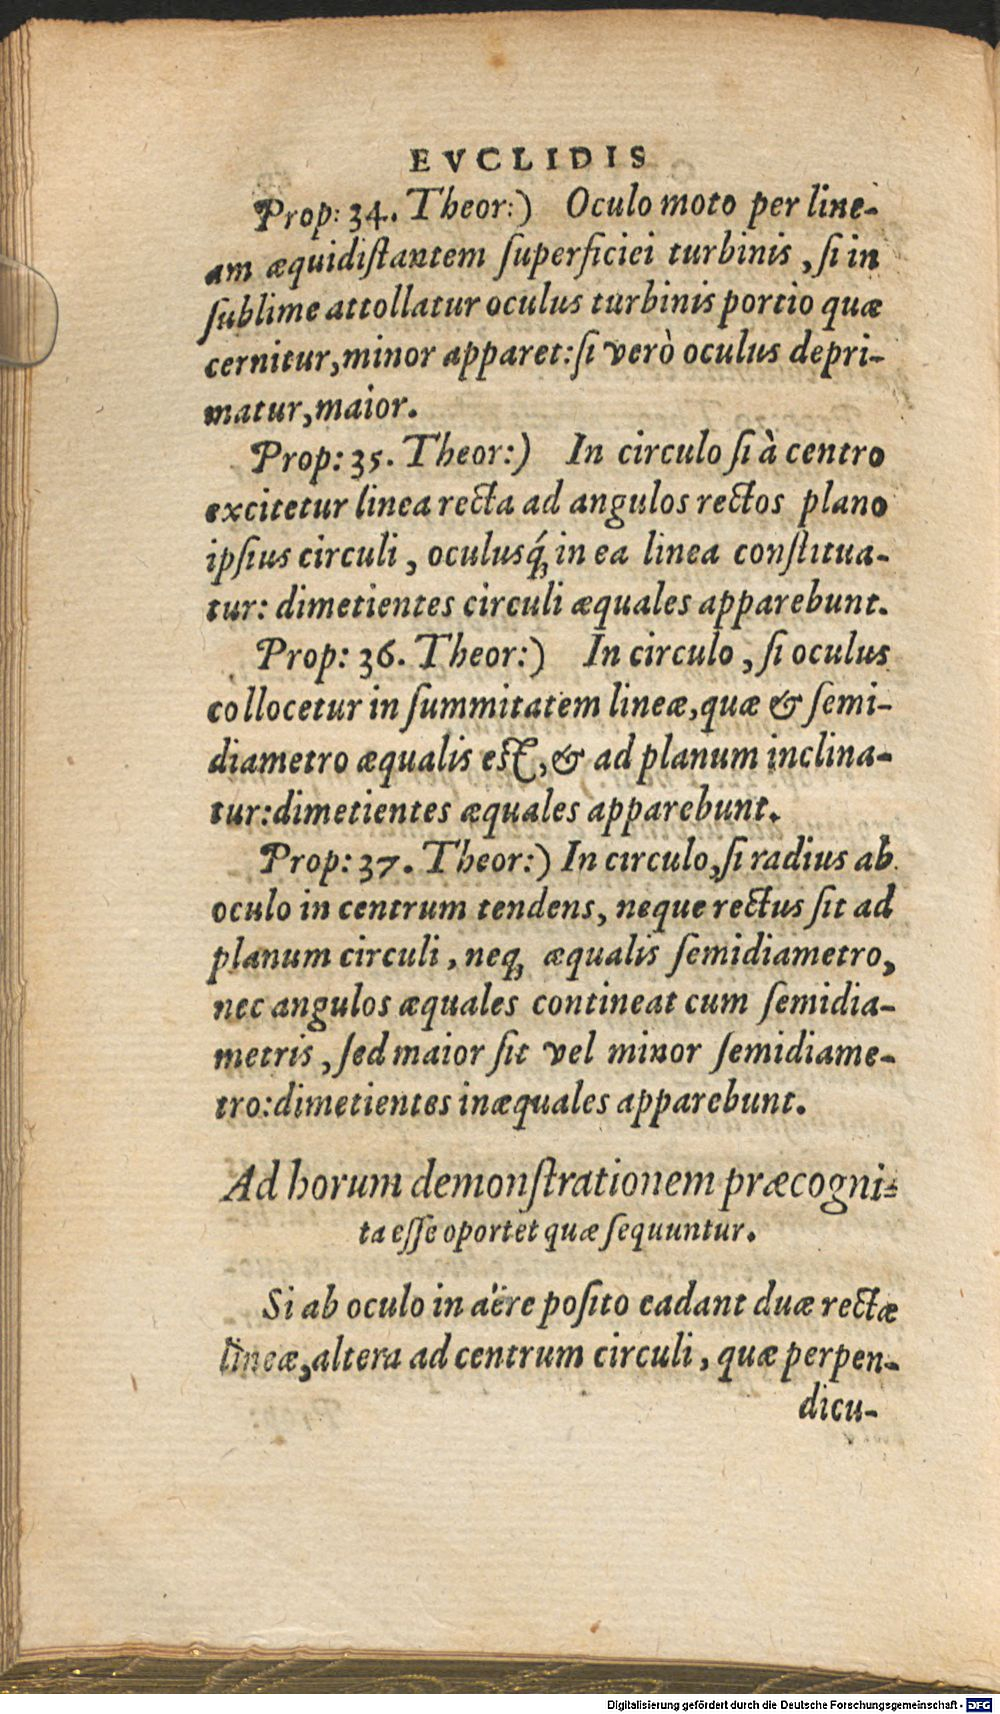 EVCLIDIS
Prop: 34. Theor:) Oculo moto per line-
am æquidiſtantem ſuperficiei turbinis, ſi in
ſublime attollatur oculus turbinis portio quæ
cernitur, minor apparet: ſi verò oculus depri-
matur, maior.
Prop: 35. Theor:) In circulo ſi à centro
excitetur linea recta ad angulos rectos plano
ipſius circuli, oculusq́; in ea linea conſtitua-
tur: dimetientes circuli æquales apparebunt.
Prop: 36. Theor:) In circulo, ſi oculus
collocetur in ſummitatem lineæ, quæ & ſemi-
diametro æqualis eſt, & ad planum inclina-
tur: dimetientes æquales apparebunt.
Prop: 37. Theor:) In circulo, ſi radius ab
oculo in centrum tendens, neque rectus ſit ad
planum circuli, neq; æqualis ſemidiametro,
nec angulos æquales contineat cum ſemidia-
metris, ſed maior ſit vel minor ſemidiame-
tro: dimetientes inæquales apparebunt.
Ad horum demonſtrationem præcogni-
ta eſſe oportet quæ ſequuntur.
Si ab oculo in aëre poſito cadant duæ rectæ
lineæ, altera ad centrum circuli, quæ perpen-
dicu-
Digitalisierung gefördert durch die Deutsche Forschungsgemeinschaft - DFG